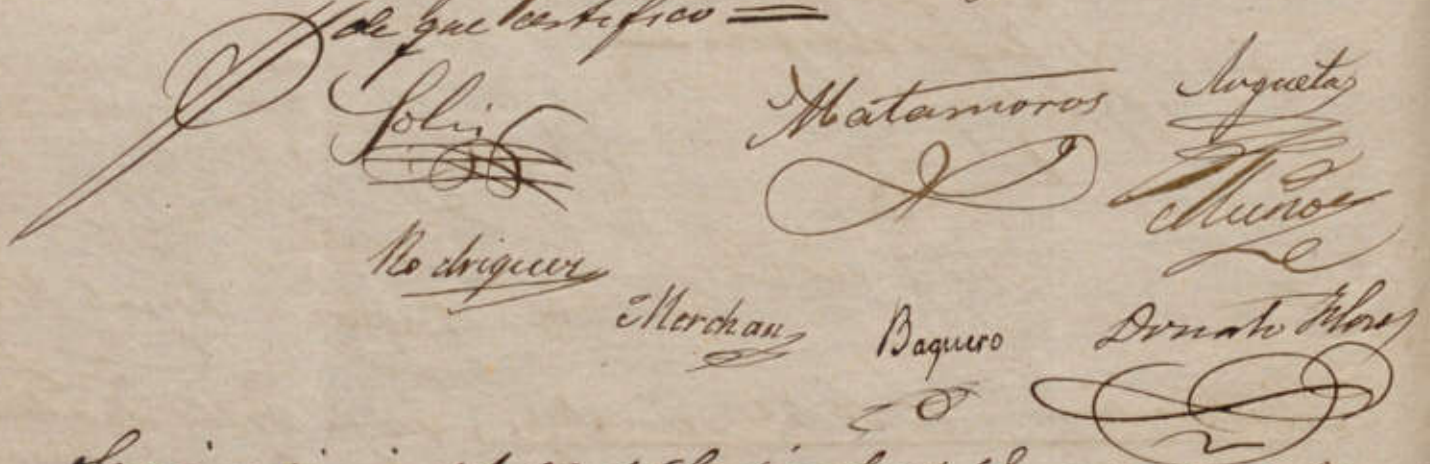 de que certifico =
Solis
Matamoros
Augueta
Muñoz
Rodriguez
Merchan
Baquero
Donato Flores